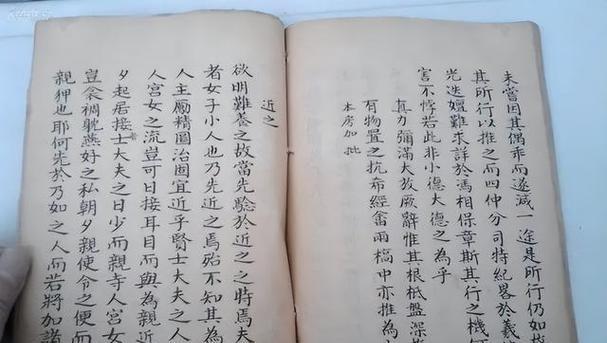 未嘗因其偶乖而遂減一途是所行仍如故
其所行以推之而四仲分司特紀畧於義
光迭嬗難求詳於馮相保章斯其行之機
言不悖若此非小德大德之為乎
真力彌滿大放厥辭惟其根柢盤深
有物置之抗希經畬兩稿中亦推為
本房加批
近之
欲明難養之故當先騐於近之之時焉夫
者女子小人也乃先近之焉殆不知其為
人主勵精圖治固宜近乎賢士大夫之人
人宮女之流豈可日接耳目而與為親近
夕起居接士大夫之日少而親寺人宮女
豈衾裯躭燕好之私朝夕親使令之便而
親狎也耶何先於乃如之人而若將加諸